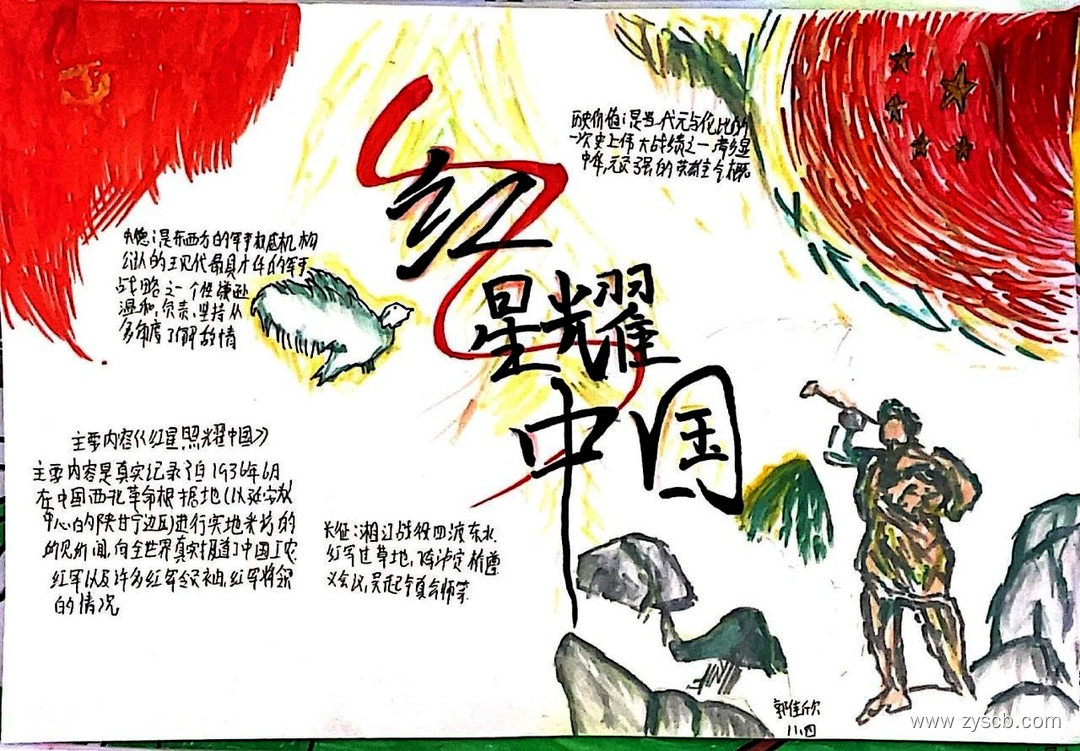 红
星耀
中国
历史价值:是当代无与伦比的
一次史上伟大战绩之一,彰显
中华,顽强的英雄主气概
朱德:是东西方的军事权威机构
公认的现代最具才华的军事
战略之一个性谦逊
温和,负责,坚持从
多角度了解敌情
主要内容《红星照耀中国》
主要内容是真实记录了自1936年6月
在中国西北革命根据地(以延安为
中心的陕甘宁边区)进行实地采访的
所见所闻,向全世界真实报道了中国工农
红军以及许多红军领袖,红军将领
的情况
长征:湘江战役四渡赤水
红军过草地,飞夺泸定桥遵
义会议,吴起镇会师等
郭佳欣
11.四
www.zyscb.com